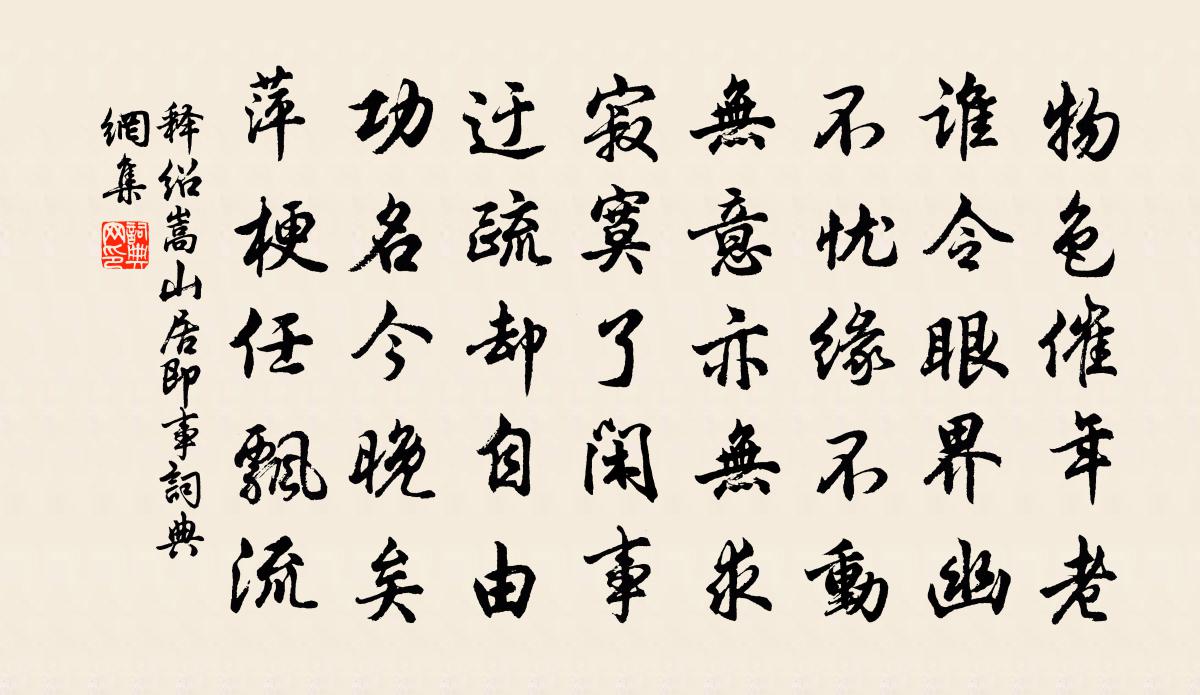 物色催年老
谁令眼界幽
不忧缘不動
無意亦無求
寂寞了闲事
迂疏却自由
功名今晚矣
萍梗任飄流
释绍嵩山居即事詞典
網集
詞典
网印